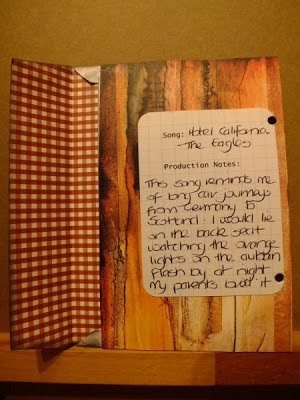 Song: Hotel California
The Eagles
Production Notes:
This song reminds me
of long car journeys
from Germany to
Scotland. I would lie
on the back seat
watching the orange
lights on the autobahn
flash by at night
my parents loved it